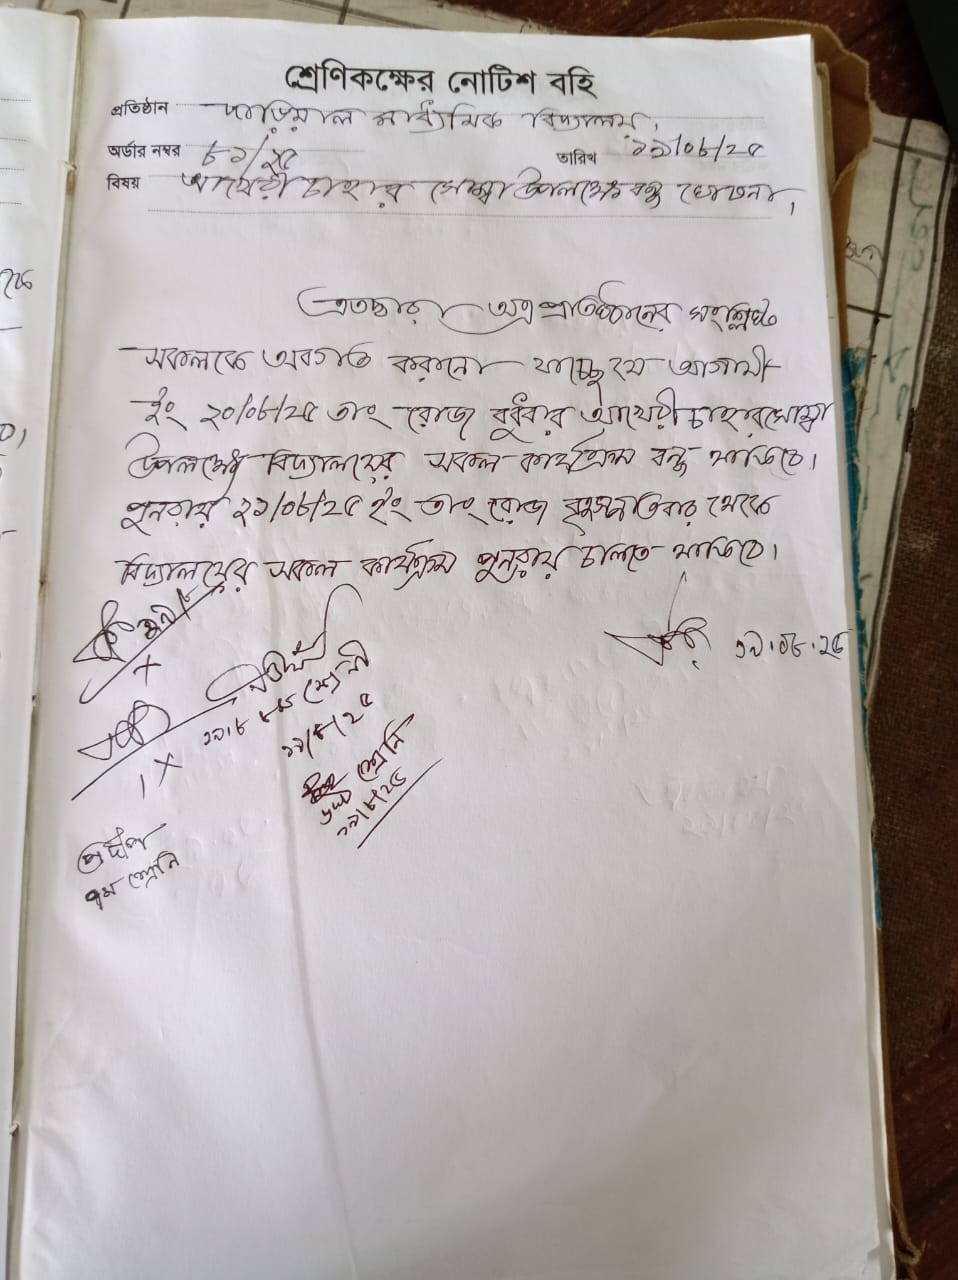 শ্রেণিকক্ষের নোটিশ বহি
প্রতিষ্ঠান দাড়িয়াল মাধ্যমিক বিদ্যালয়।
অর্ডার নম্বর ৮১/২৫ তারিখ ১৯/০৮/২৫
বিষয় আখেরী চাহার সোম্বা উপলক্ষে বন্ধ ঘোষনা।
এতদ্বারা অত্র প্রতিষ্ঠানের সংশ্লিষ্ট
সকলকে অবগতি করানো যাচ্ছে যে আগামী
ইং ২০/০৮/২৫ তাং রোজ বুধবার আখেরী চাহার সোম্বা
উপলক্ষে বিদ্যালয়ের সকল কার্যক্রম বন্ধ থাকিবে।
পুনরায় ২১/০৮/২৫ ইং তাং রোজ বৃহস্পতিবার থেকে
বিদ্যালয়ের সকল কার্যক্রম পুনরায় চলিতে থাকিবে।
১৯.০৮.২৫
৮ম শ্রেনী
১৯/৮/২৫
শ্রেনি
১৯/৮/২৫
প্রদীপ
৭ম শ্রেনি